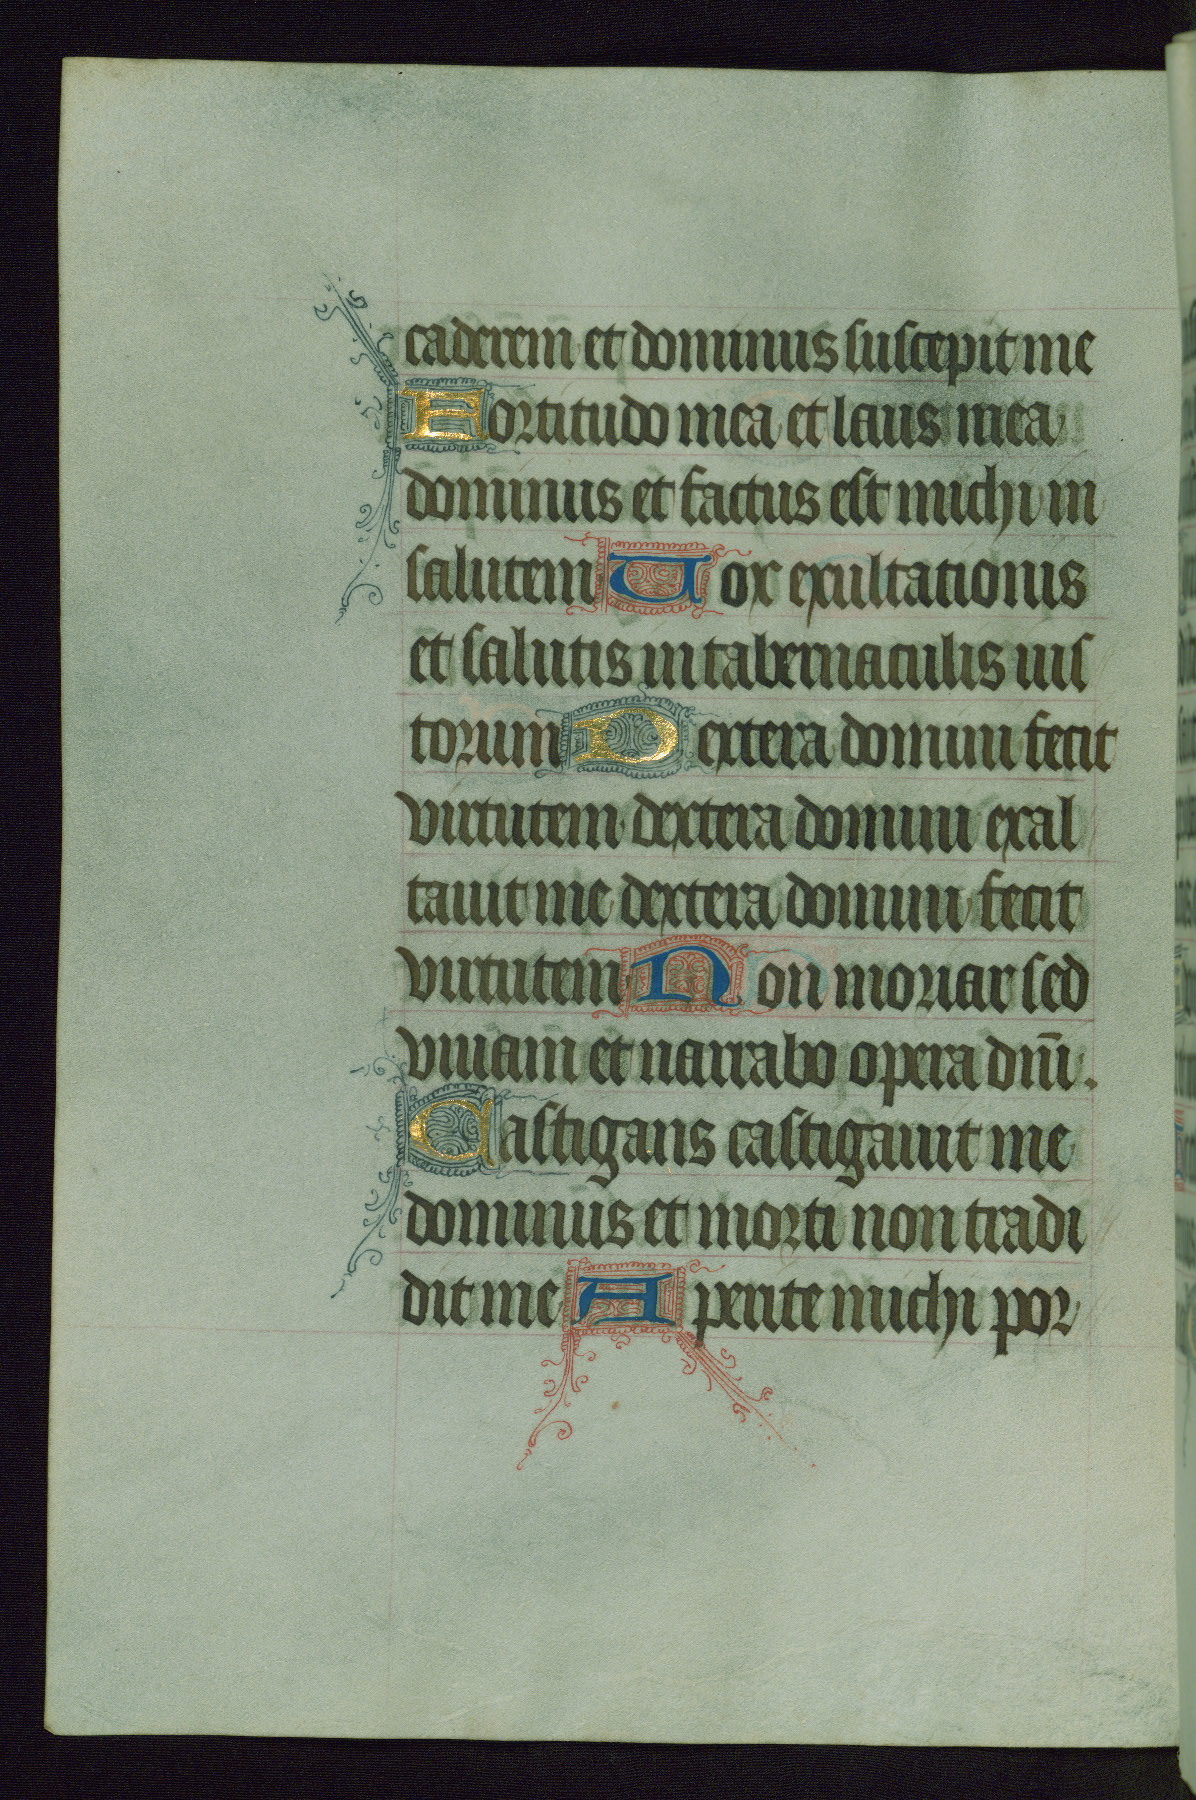 caderem et dominus suscepit me
Fortitudo mea et laus mea
dominus et factus est michi in
salutem Uox exultationis
et salutis in tabernaculis ius
torum Dextera domini fecit
virtutem dextera domini exal
tauit me dextera domini fecit
virtutem Non moriar sed
viuam et narrabo opera dnī.
Castigans castigauit me
dominus et morti non tradi
dit me Aperite michi por